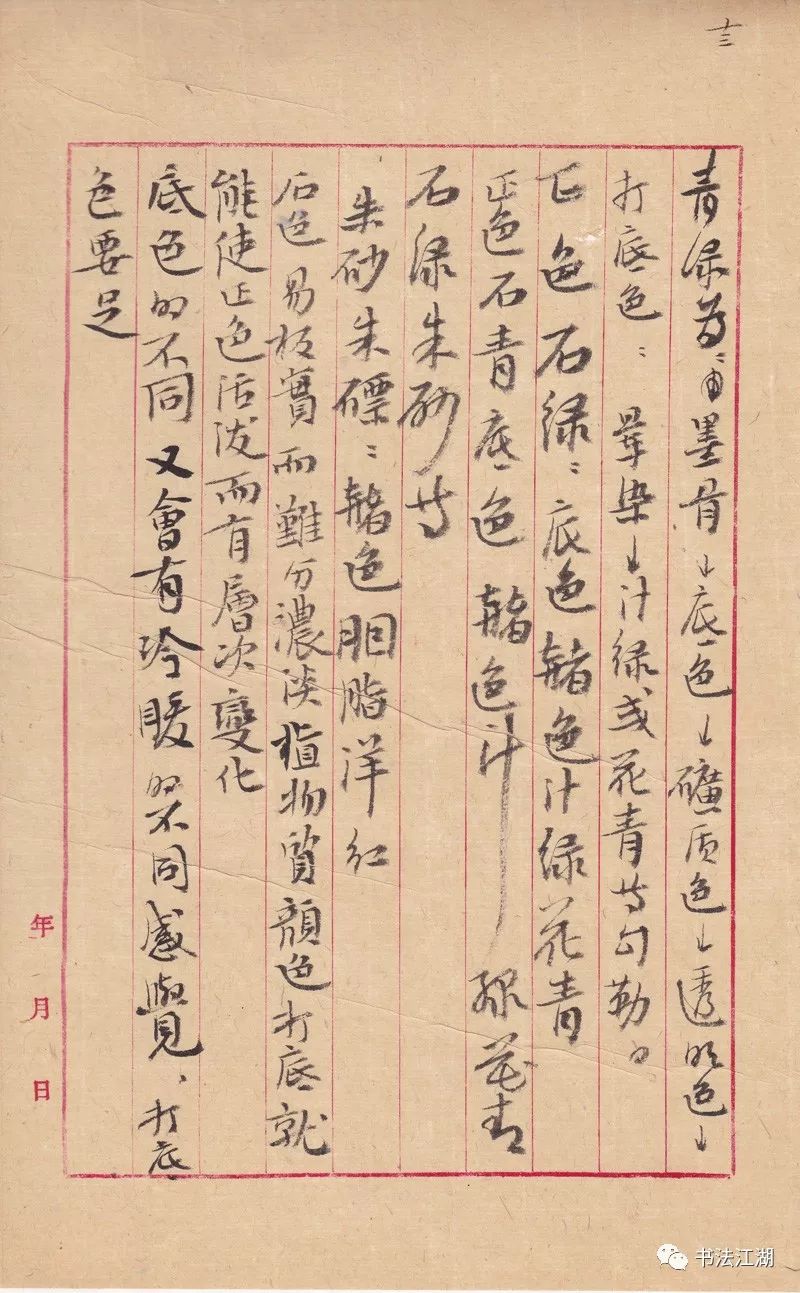 十三
青绿为：由墨骨↓底色↓礦质色↓透明色↓
打底色：暈染↓汁绿或花青等勾勒。
正色石绿：底色赭色汁绿花青
正色石青底色赭色汁绿花青
石绿朱砂等
朱砂朱磦：赭色胭脂洋红
石色易板實而難分濃淡植物質顏色打底就
能使正色活泼而有層次變化
底色的不同又會有冷暖的不同感覺、打底
色要足
年月日
书法江湖